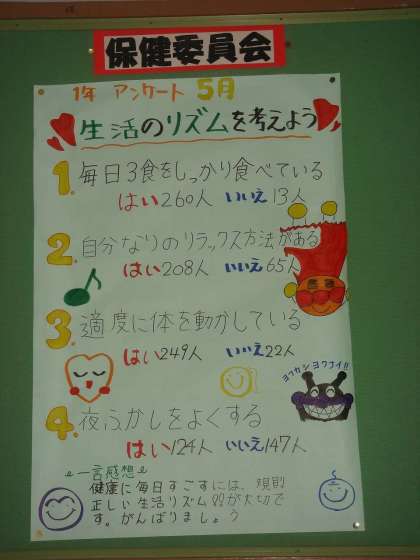 保健委員会
1年 アンケート 5月
生活のリズムを考えよう
1. 毎日3食をしっかり食べている
はい260人 いいえ13人
2. 自分なりのリラックス方法がある
はい208人 いいえ65人
3. 適度に体を動かしている
はい249人 いいえ22人
ヨフカシヨクナイ!!
4. 夜ふかしをよくする
はい124人 いいえ147人
一言感想
健康に毎日すごすには、規則
正しい生活リズムが大切で
す。がんばりましょう